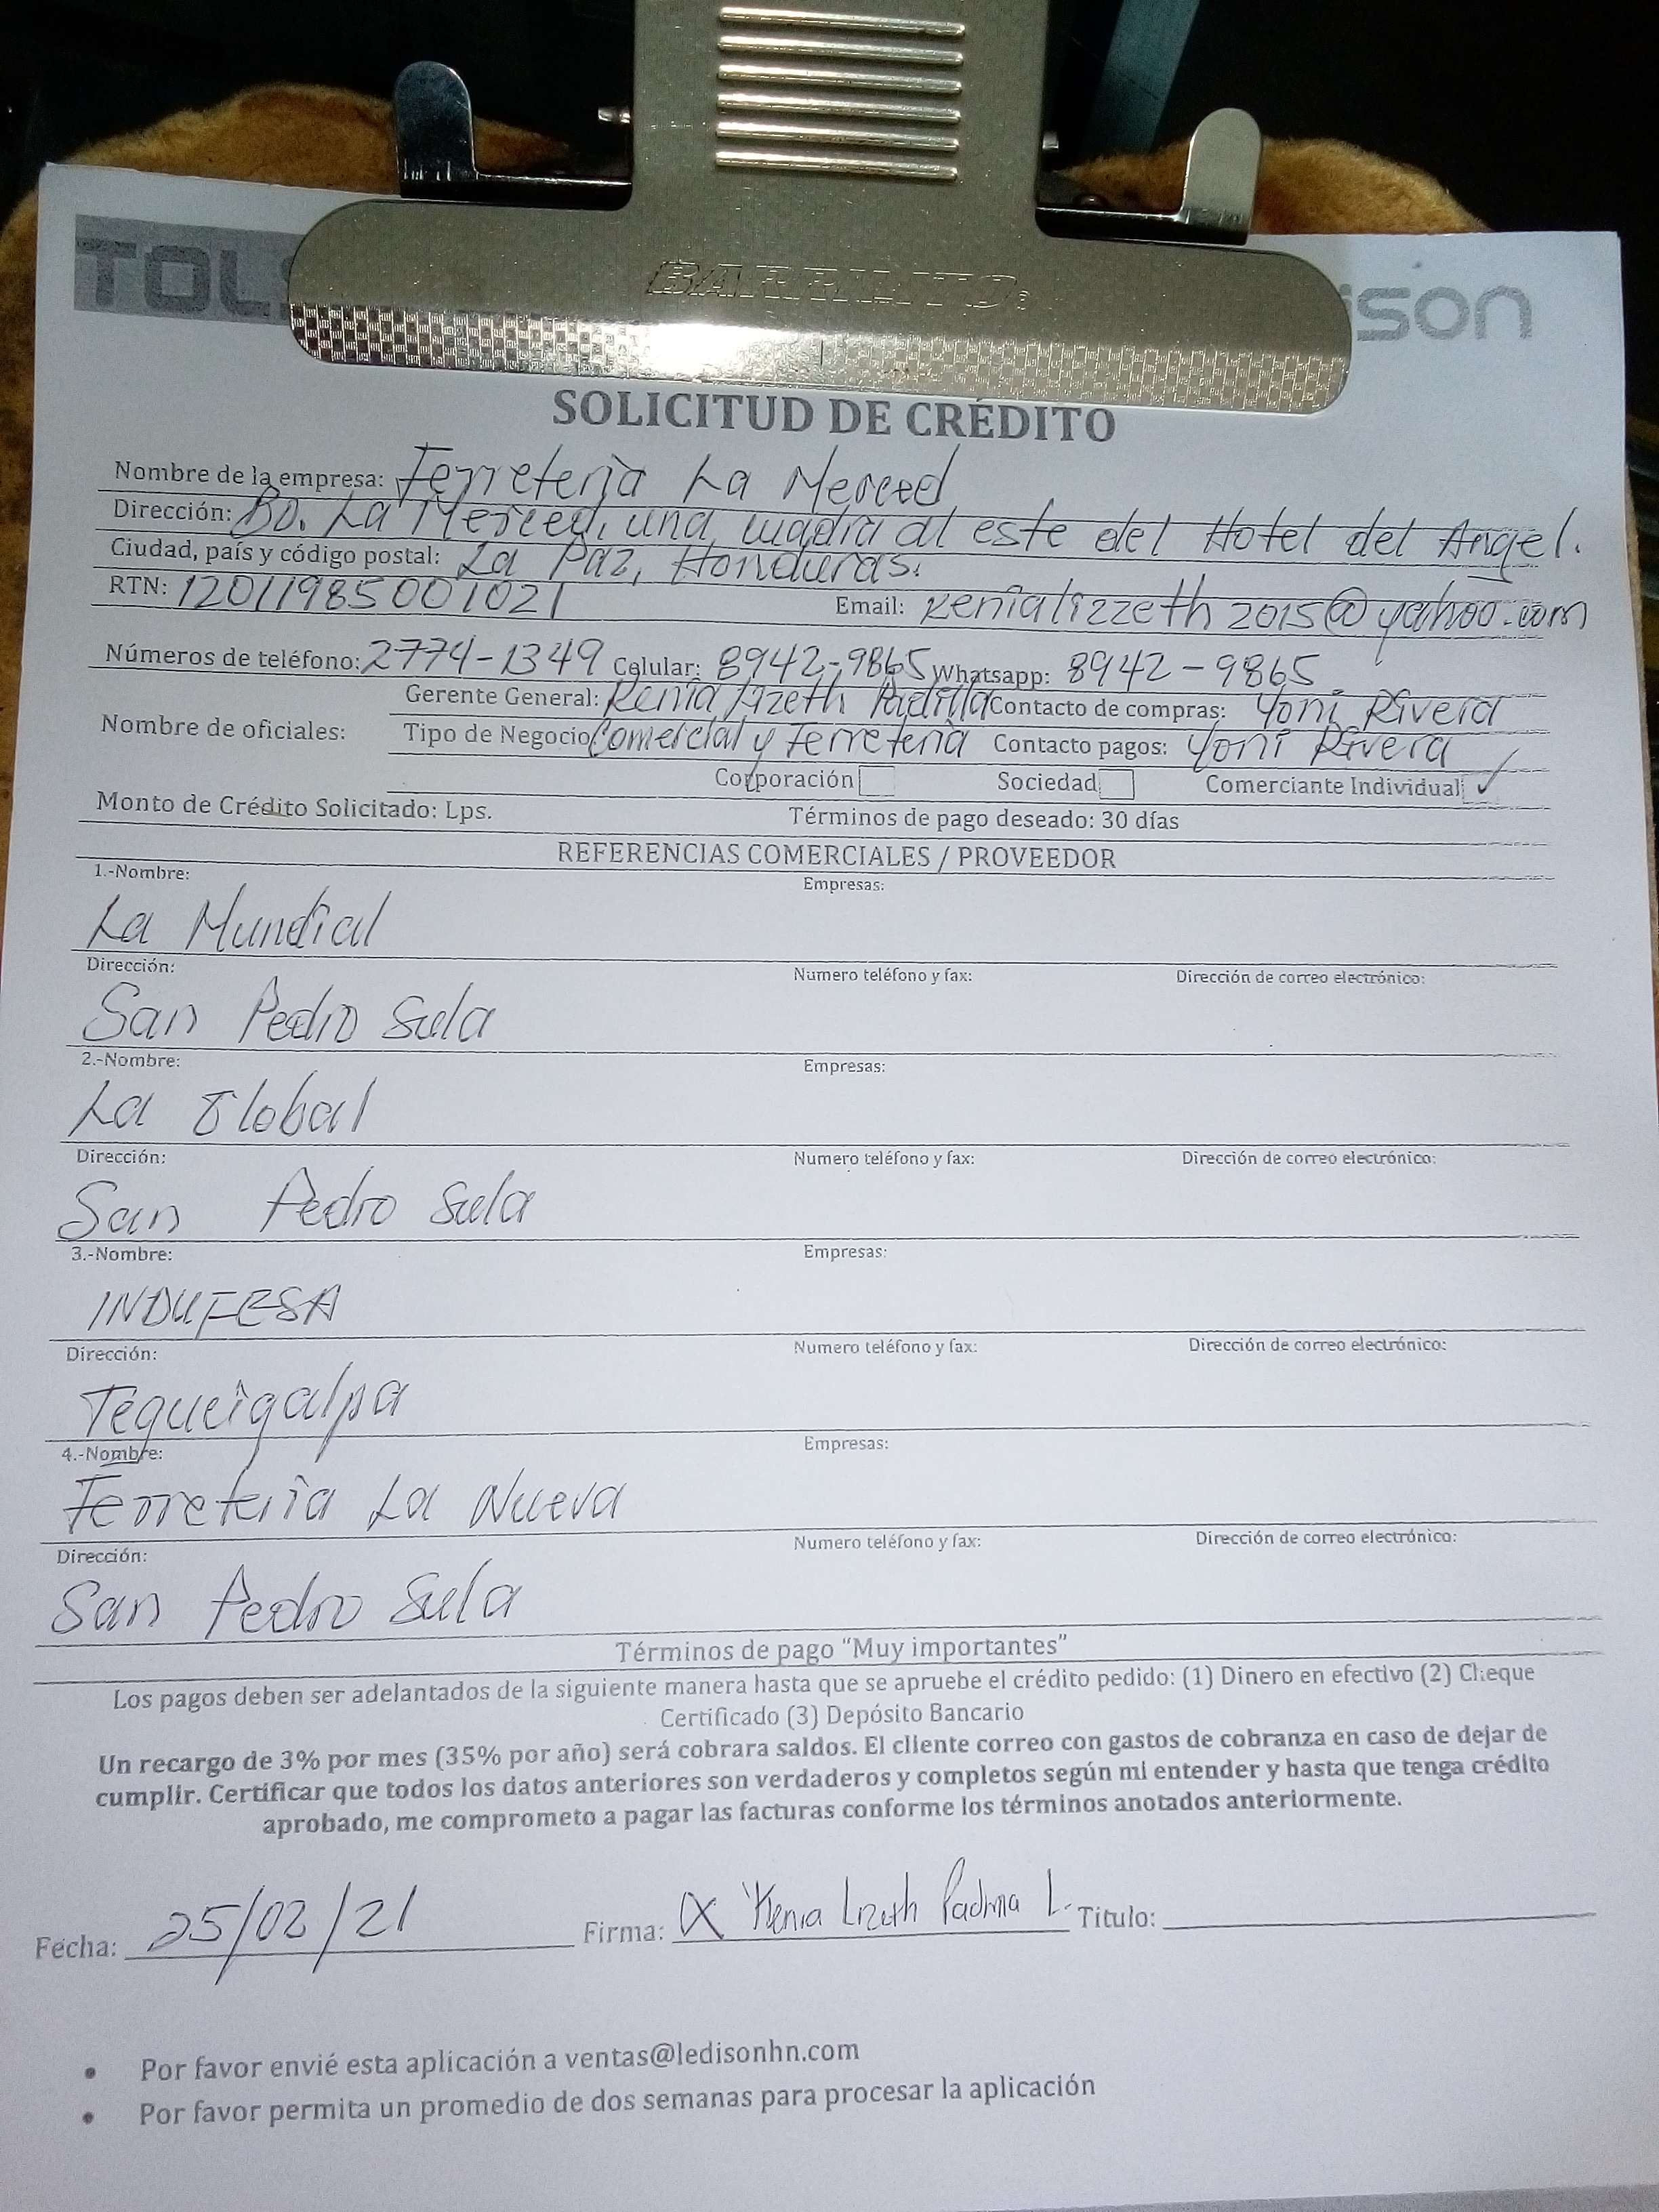 TOL
BARRILITO
ison
SOLICITUD DE CRÉDITO
Nombre de la empresa: Ferretería La Merced
Dirección: Bo. La Merced, una cuadra al este del Hotel del Angel.
Ciudad, país y código postal: La Paz, Honduras.
RTN: 12011985001021 Email: kenializzeth2015@yahoo.com
Números de teléfono: 2774-1349 Celular: 8942-9865 Whatsapp: 8942-9865
Gerente General: Kenia Lizeth Padilla Contacto de compras: Yoni Rivera
Nombre de oficiales: Tipo de Negocio Comercial y Ferretería Contacto pagos: Yoni Rivera
Corporación Sociedad Comerciante Individual ✓
Monto de Crédito Solicitado: Lps. Términos de pago deseado: 30 días
REFERENCIAS COMERCIALES / PROVEEDOR
1.-Nombre: Empresas:
La Mundial
Dirección: Numero teléfono y fax: Dirección de correo electrónico:
San Pedro Sula
2.-Nombre: Empresas:
La Global
Dirección: Numero teléfono y fax: Dirección de correo electrónico:
San Pedro Sula
3.-Nombre: Empresas:
INDUFESA
Dirección: Numero teléfono y fax: Dirección de correo electrónico:
Tegucigalpa
4.-Nombre: Empresas:
Ferretería La Nueva
Dirección: Numero teléfono y fax: Dirección de correo electrónico:
San Pedro Sula
Términos de pago “Muy importantes”
Los pagos deben ser adelantados de la siguiente manera hasta que se apruebe el crédito pedido: (1) Dinero en efectivo (2) Cheque
Certificado (3) Depósito Bancario
Un recargo de 3% por mes (35% por año) será cobrara saldos. El cliente correo con gastos de cobranza en caso de dejar de
cumplir. Certificar que todos los datos anteriores son verdaderos y completos según mi entender y hasta que tenga crédito
aprobado, me comprometo a pagar las facturas conforme los términos anotados anteriormente.
Fecha: 25/02/21 Firma: X Kenia Lizeth Padilla L. Titulo:
• Por favor envié esta aplicación a ventas@ledisonhn.com
• Por favor permita un promedio de dos semanas para procesar la aplicación